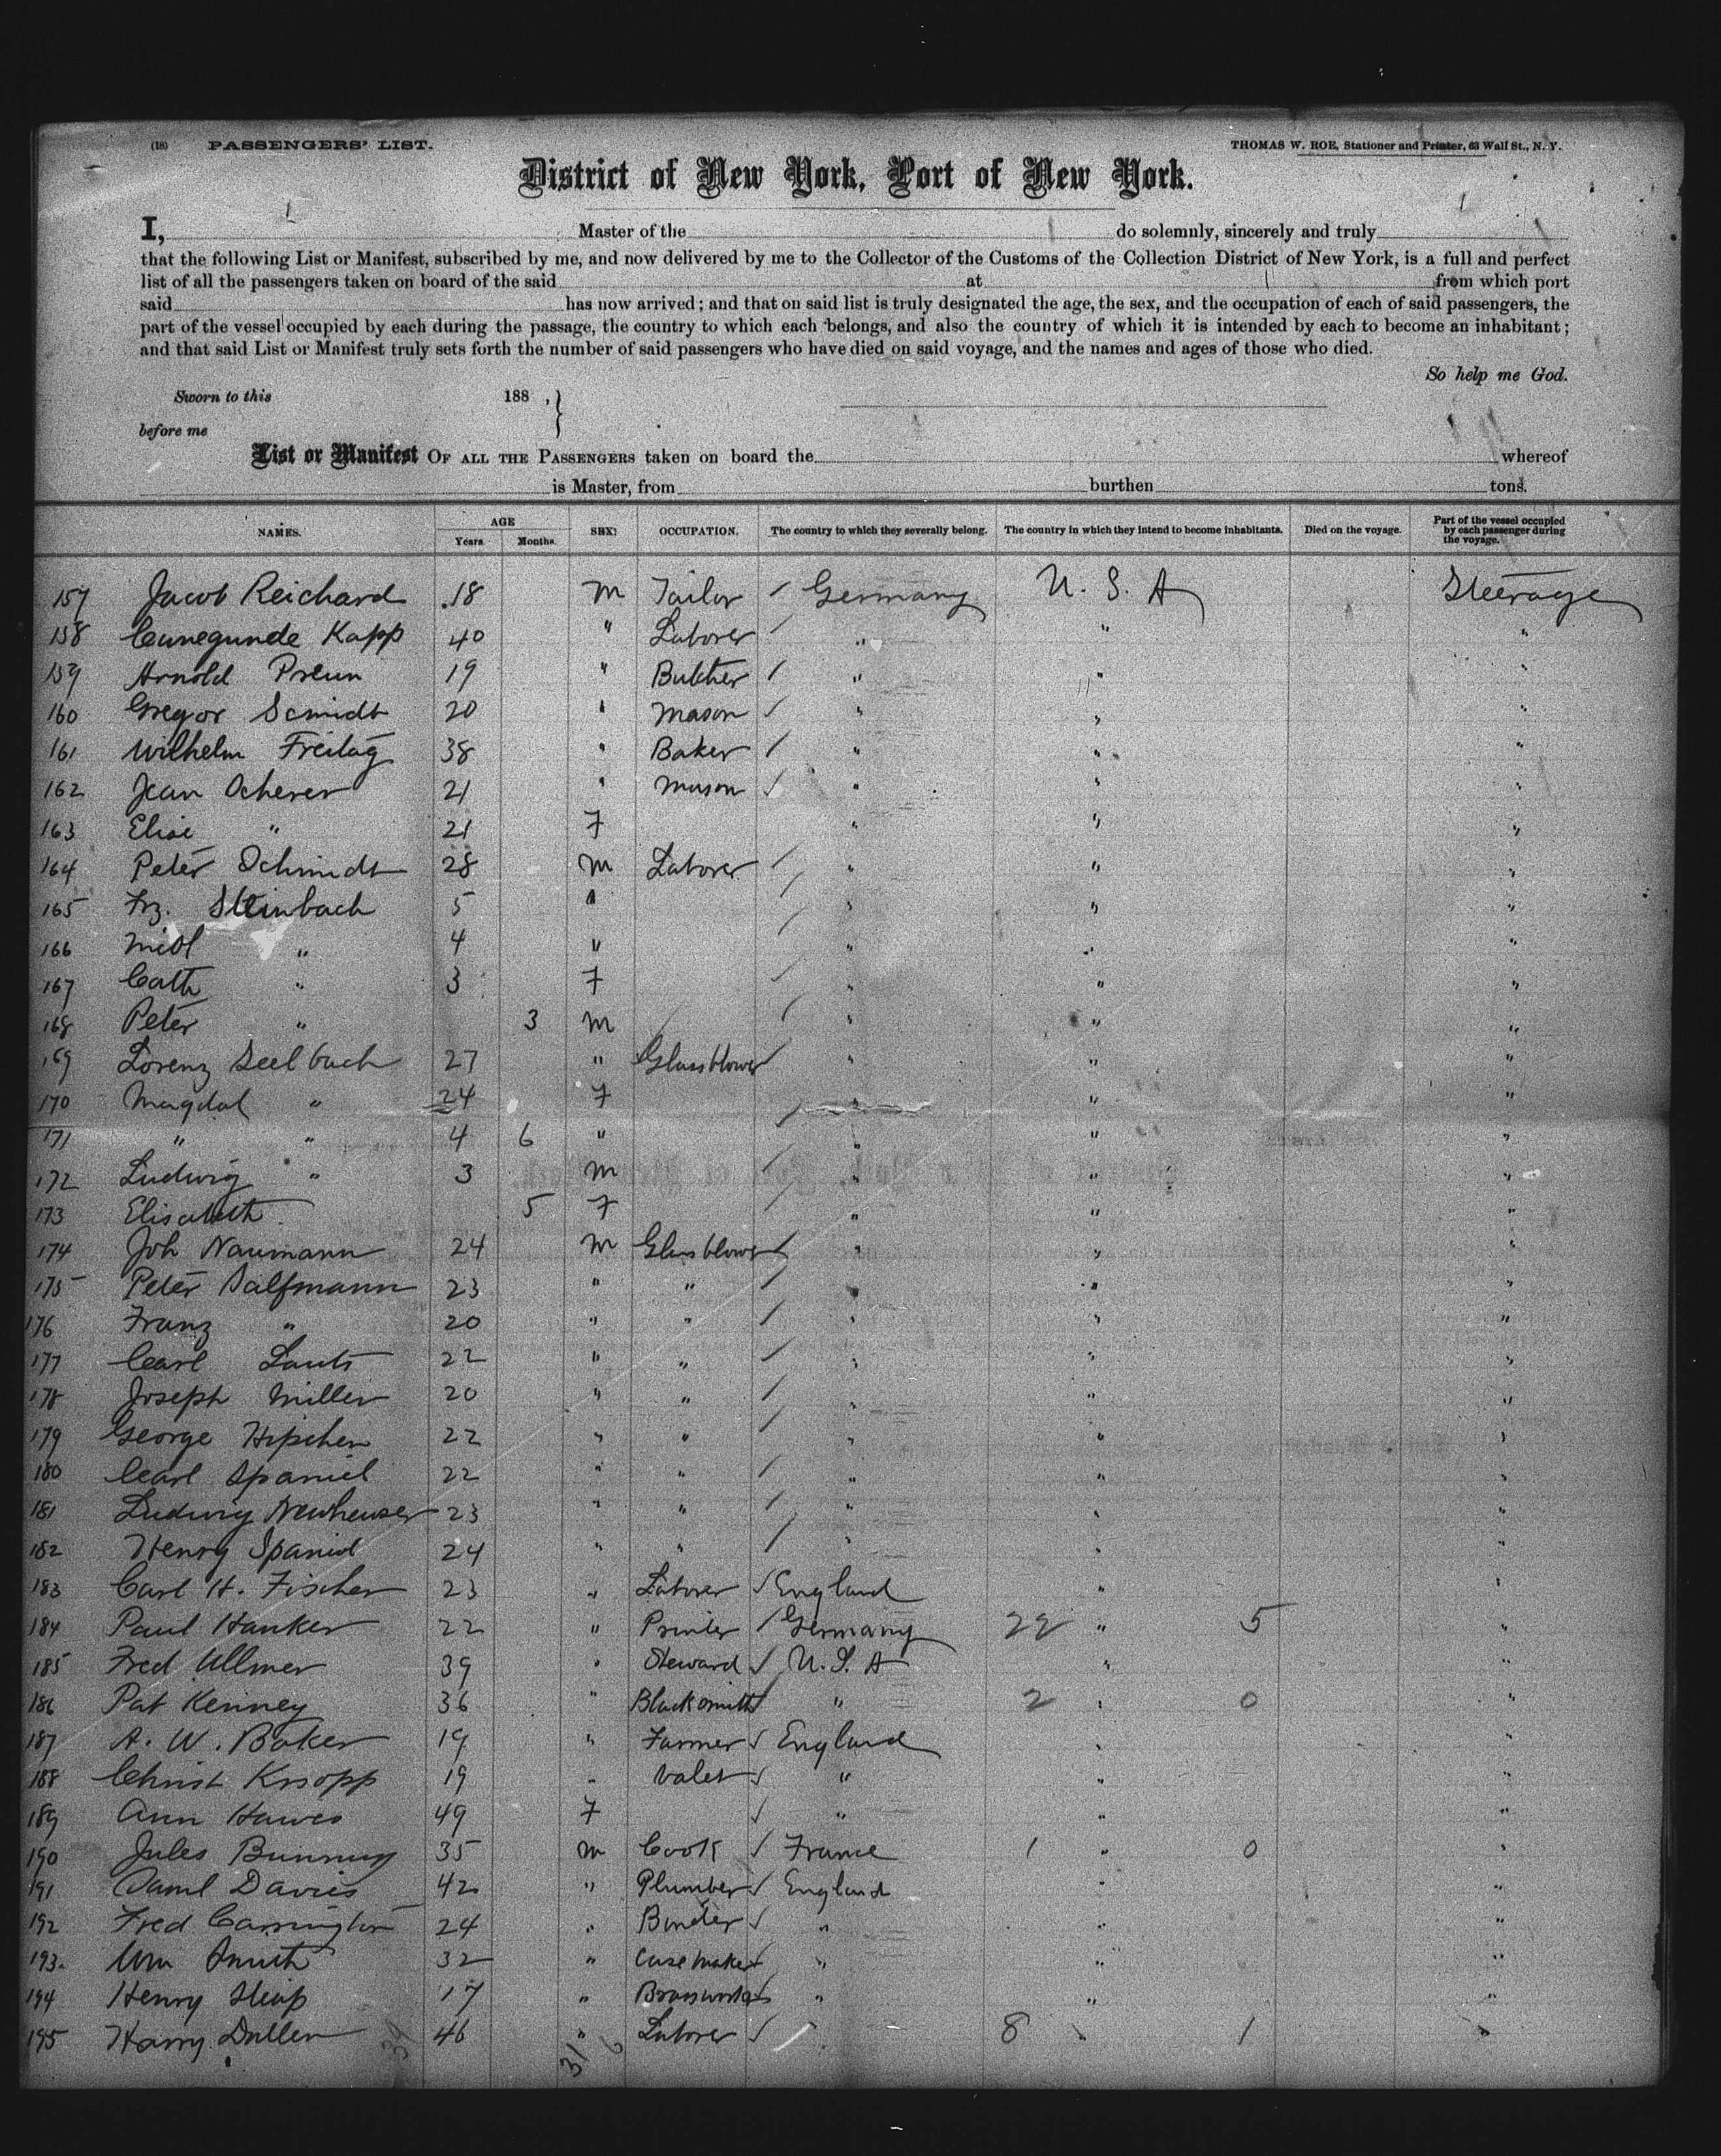 (18) PASSENGERS' LIST. THOMAS W. ROE, Stationer and Printer, 63 Wall St., N. Y.
District of New York, Port of New York.
I, Master of the do solemnly, sincerely and truly
that the following List or Manifest, subscribed by me, and now delivered by me to the Collector of the Customs of the Collection District of New York, is a full and perfect
list of all the passengers taken on board of the said at from which port
said has now arrived; and that on said list is truly designated the age, the sex, and the occupation of each of said passengers, the
part of the vessel occupied by each during the passage, the country to which each belongs, and also the country of which it is intended by each to become an inhabitant;
and that said List or Manifest truly sets forth the number of said passengers who have died on said voyage, and the names and ages of those who died.
So help me God.
Sworn to this 188 , }
before me
List or Manifest OF ALL THE PASSENGERS taken on board the whereof
is Master, from burthen tons.
NAMES. AGE Years. Months. SEX. OCCUPATION. The country to which they severally belong. The country in which they intend to become inhabitants. Died on the voyage. Part of the vessel occupied by each passenger during the voyage.
157 Jacob Reichard 18 M Tailor / Germany U. S. A Steerage
158 Cunegunde Kapp 40 " Laborer / " " "
159 Arnold 19 " Butcher / " " "
160 Gregor Scmidt 20 " Mason / " " "
161 Wilhelm Freitag 38 " Baker / " " "
162 Jean Scherer 21 " Mason / " " "
163 Elise " 21 F " " "
164 Peter Schmidt 28 M Laborer / " " "
165 Frz. Steinbach 5 " / " " "
166 " 4 " / " " "
167 Cath " 3 F / " " "
168 Peter " 3 M / " " "
169 Lorenz Seelbach 27 " Glassblower / " " "
170 Magdal " 24 F " " "
171 " " 4 6 " / " " "
172 Ludwig " 3 M / " " "
173 Elisabeth 5 F / " " "
174 Joh Naumann 24 M Glassblower / " " "
175 Peter Salfmann 23 " " / " " "
176 Franz " 20 " " / " " "
177 Carl Lauts 22 " " / " " "
178 Joseph Miller 20 " " / " " "
179 George Hipchen 22 " " / " " "
180 Carl Spaniel 22 " " / " " "
181 Ludwig Newheuser 23 " " / " " "
182 Henry Spaniol 24 " " / " " "
183 Carl H. Fischer 23 " Laborer / England " "
184 Paul Hanker 22 " Printer / Germany 22 " 5 "
185 Fred Ullmer 39 " Steward / U. S. A " "
186 Pat Kenney 36 " Blacksmith / " 2 " 0 "
187 A. W. Baker 19 " Farmer / England " "
188 Christ Knopp 19 " Valet / " " "
189 Ann Hawes 49 F / " " "
190 Jules 35 M Cook / France 1 " 0 "
191 Saml Davies 42 " Plumber / England " "
192 Fred Carrington 24 " Binder / " " "
193 Wm Smith 32 " Case maker / " " "
194 Henry Heap 17 " Brassworker / " " "
195 Harry Dullen 46 " Laborer / " 8 " 1 "
34 31 6